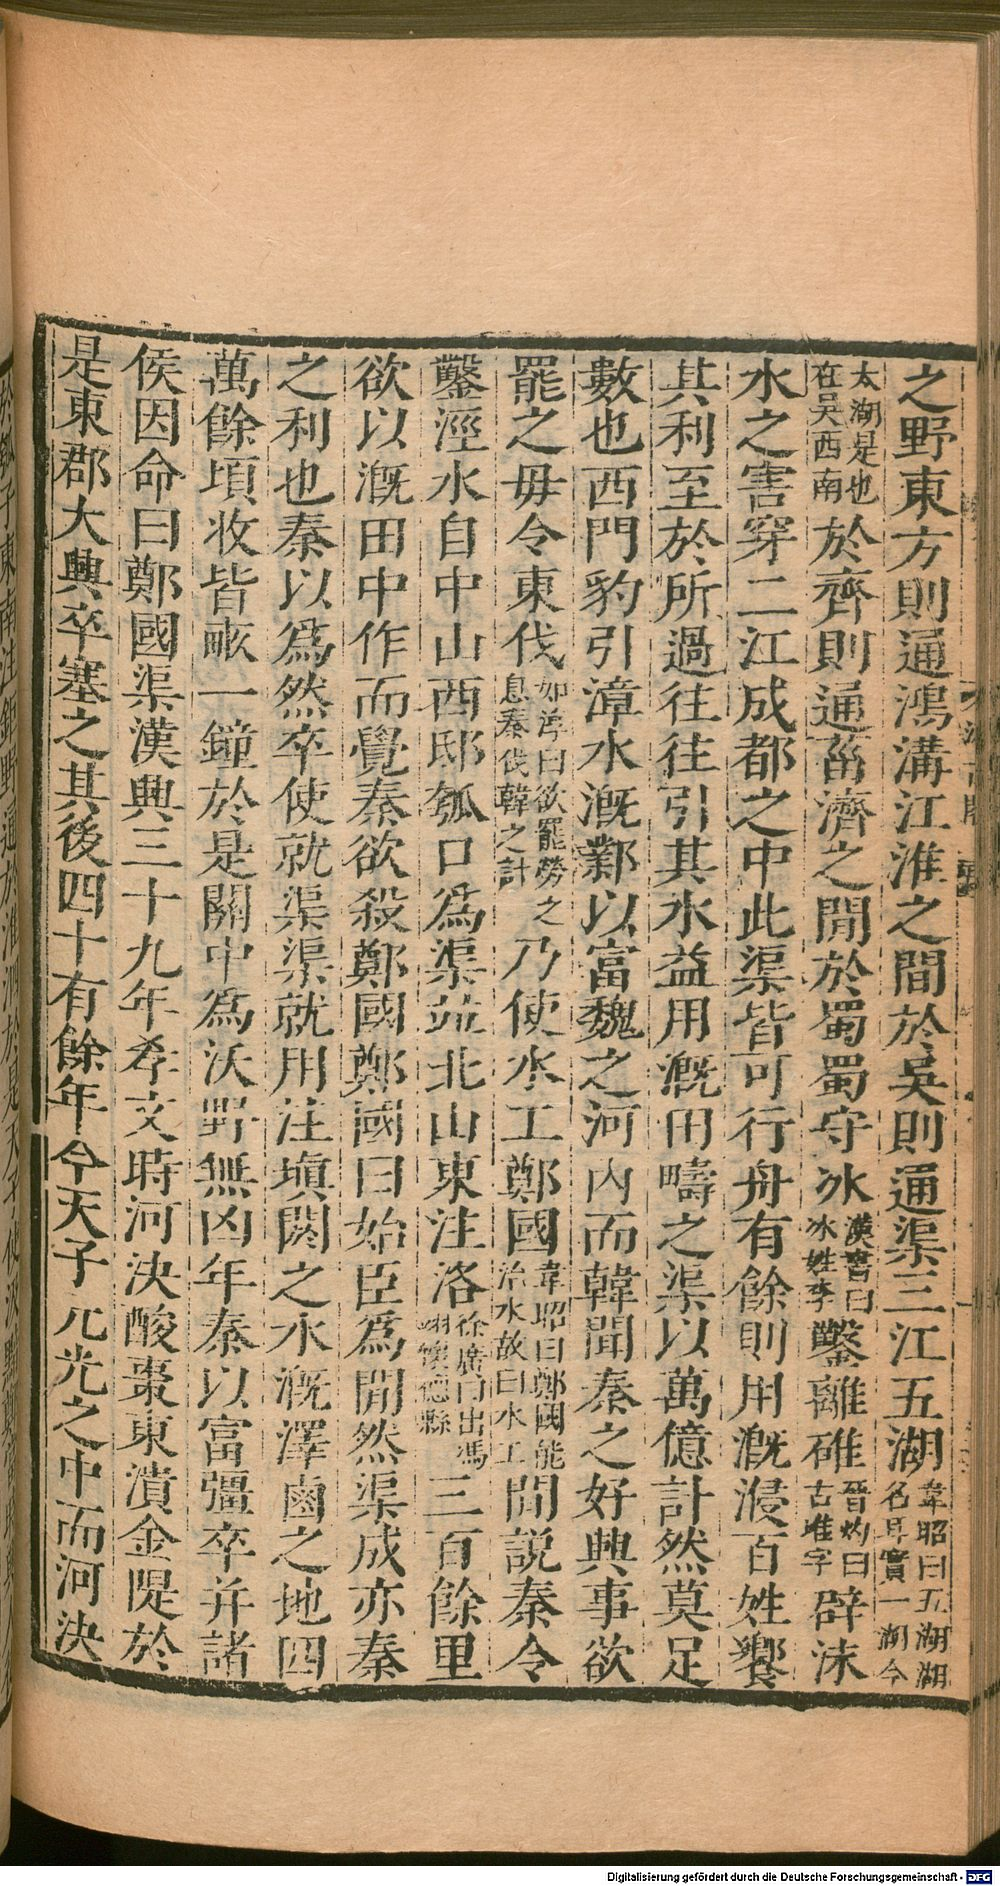 之野東方則通鴻溝江淮之間於吳則通渠三江五湖韋昭曰五湖湖名耳實一湖今
太湖是也在吳西南於齊則通菑濟之閒於蜀蜀守冰漢書曰冰姓李鑿離碓晉灼曰古堆字辟沫
水之害穿二江成都之中此渠皆可行舟有餘則用溉浸百姓饗
其利至於所過往往引其水益用溉田疇之渠以萬億計然莫足
數也西門豹引漳水溉鄴以富魏之河內而韓聞秦之好興事欲
罷之毋令東伐如淳曰欲罷勞之息秦伐韓之計乃使水工鄭國韋昭曰鄭國能治水故曰水工閒說秦令
鑿涇水自中山西邸瓠口爲渠竝北山東注洛徐廣曰出馮翊懷德縣三百餘里
欲以溉田中作而覺秦欲殺鄭國鄭國曰始臣爲閒然渠成亦秦
之利也秦以爲然卒使就渠渠就用注塡閼之水溉澤鹵之地四
萬餘頃收皆畝一鐘於是關中爲沃野無凶年秦以富彊卒并諸
侯因命曰鄭國渠漢興三十九年孝文時河決酸棗東潰金隄於
是東郡大興卒塞之其後四十有餘年今天子元光之中而河決
Digitalisierung gefördert durch die Deutsche Forschungsgemeinschaft - DFG